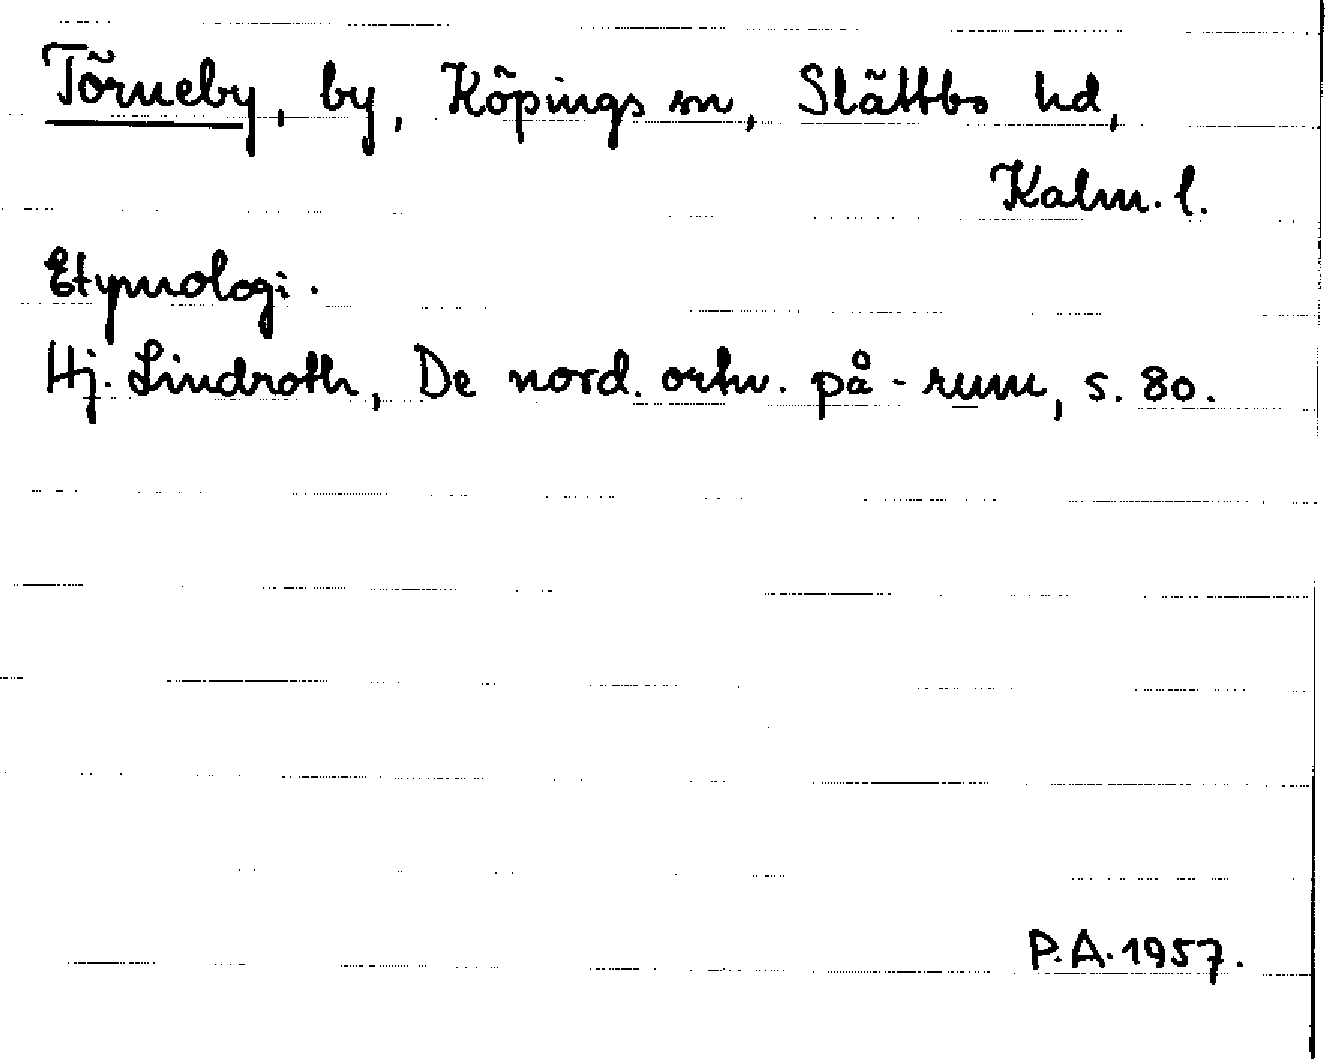 Törneby, by, Köpings sn, Slättbo hd,
Kalm. l.
Etymologi.
Hj. Lindroth, De nord. ortn. på -rum, s. 80.
P.A. 1957.